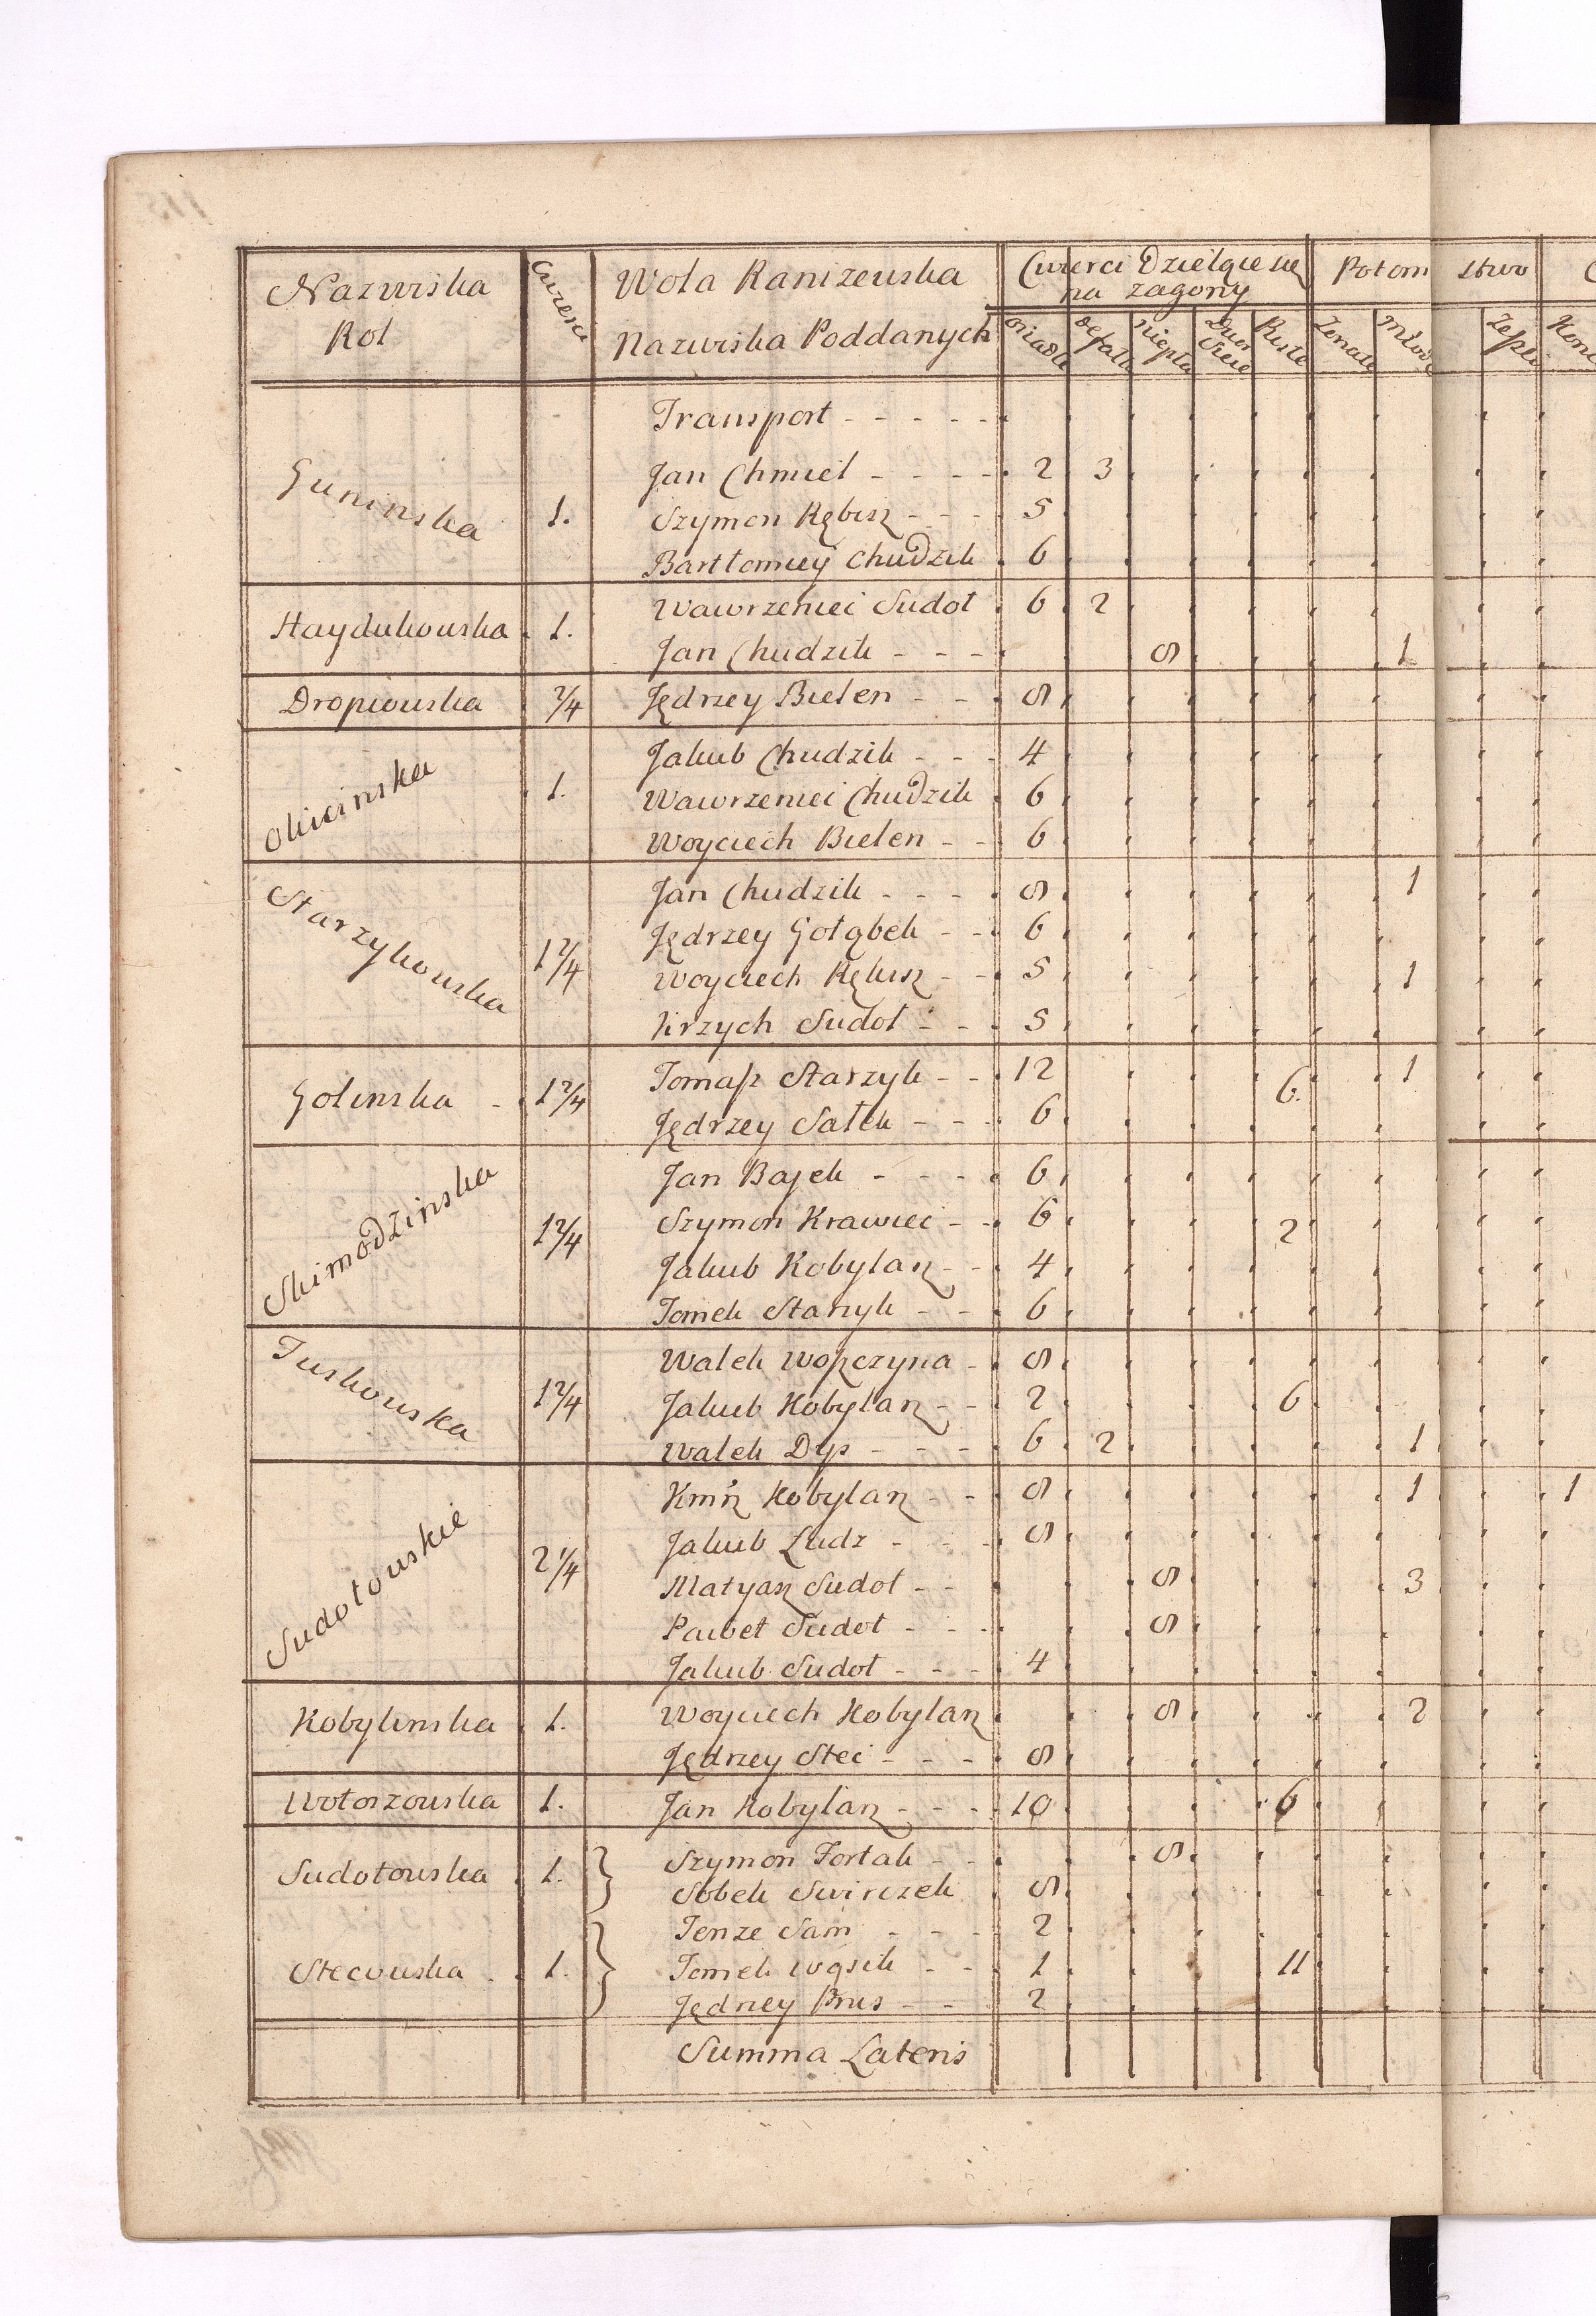 Nazwiska Rol | Cwierci | Wola Ranizewska Nazwiska Poddanych | Cwierci Dzielące się na zagony | Potom stwo
osiadłe | niepła | Dwor | Puste | Zonate | Młode
Transport - - - - -
Guninska | 1. | Jan Chmiel - - - - | 2 | 3
Szymon Rębisz - - - | 5
Bartłomiey Chudzik | 6
Haydukowska | 1. | Wawrzeniec Sudoł | 6 | 2
Jan Chudzik - - - | 8 | 1
Dropiowska | 2/4 | Jędrzey Bielen - - | 8
Jakub Chudzik - - - | 4
Okicinska | 1. | Wawrzeniec Chudzik | 6
Woyciech Bielen - - | 6
Starzykowska | 1 2/4 | Jan Chudzik - - - - | 8 | 1
Jędrzey Gołąbek - - | 6
Woyciech Rębisz - - | 5 | 1
Krzych Sudoł - - | 5
Golenska - | 1 2/4 | Tomasz Starzyk - - | 12 | 6. | 1
Jędrzey Sałek - - - | 6
Skimodzinska | 1 2/4 | Jan Bajek - - - - | 6
Szymon Krawiec - - | 6 | 2
Jakub Kobylarz - - | 4
Tomek Starzyk - - | 6
Tuskowska | 1 2/4 | Walek Wopczyna - | 8
Jakub Kobylarz - - | 2 | 6
Walek Dyp - - - - | 6 | 2 | 1
Sudołowskie | 2 1/4 | Kobylarz - - | 8 | 1 | 1
Jakub Ludz - - - | 8
Matyasz Sudoł - - | 8 | 3
Paweł Sudoł - - - | 8
Jakub Sudoł - - - | 4
Kobylenska | 1. | Woyciech Kobylarz | 8 | 2
Jędrzey Stec - - - - | 8
Wołoszowska | 1. | Jan Kobylarz - - - | 10 | 6
Sudołowska | 1. | Szymon Fortak - - | 8
Sobek Swirczek | 8
Tenze Sam - - - | 2
Stecowska | 1. | Tomek Wąsik - - | 1 | 11
Jędrzey Prus - - | 2
Summa Lateris